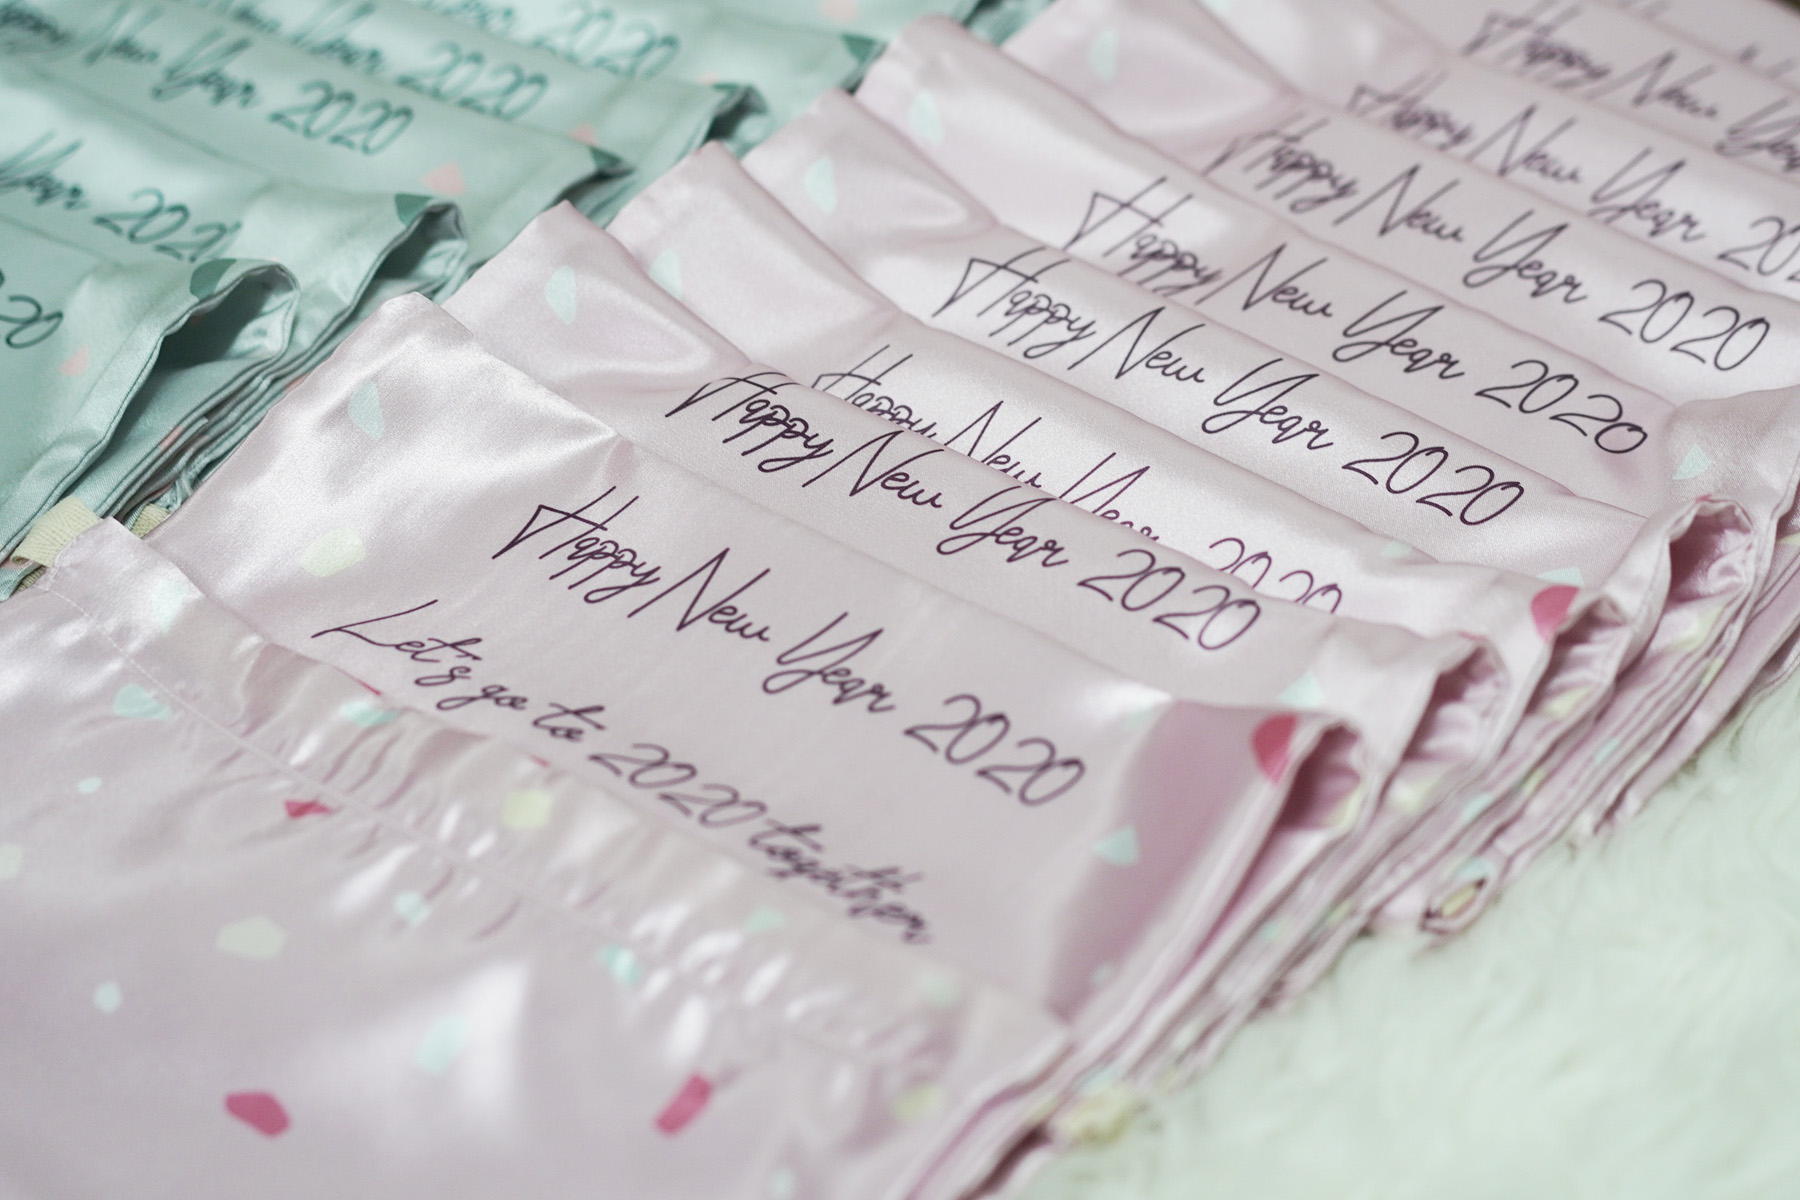 Year 2020
Year 2020
2020
New Year 2020
Happy New
Happy New Year
Happy New Year 2020
Happy New Year 2020
Happy New Year 2020
Happy New Year 2020
Happy New Year 2020
Happy New Year 2020
Let's go to 2020 together